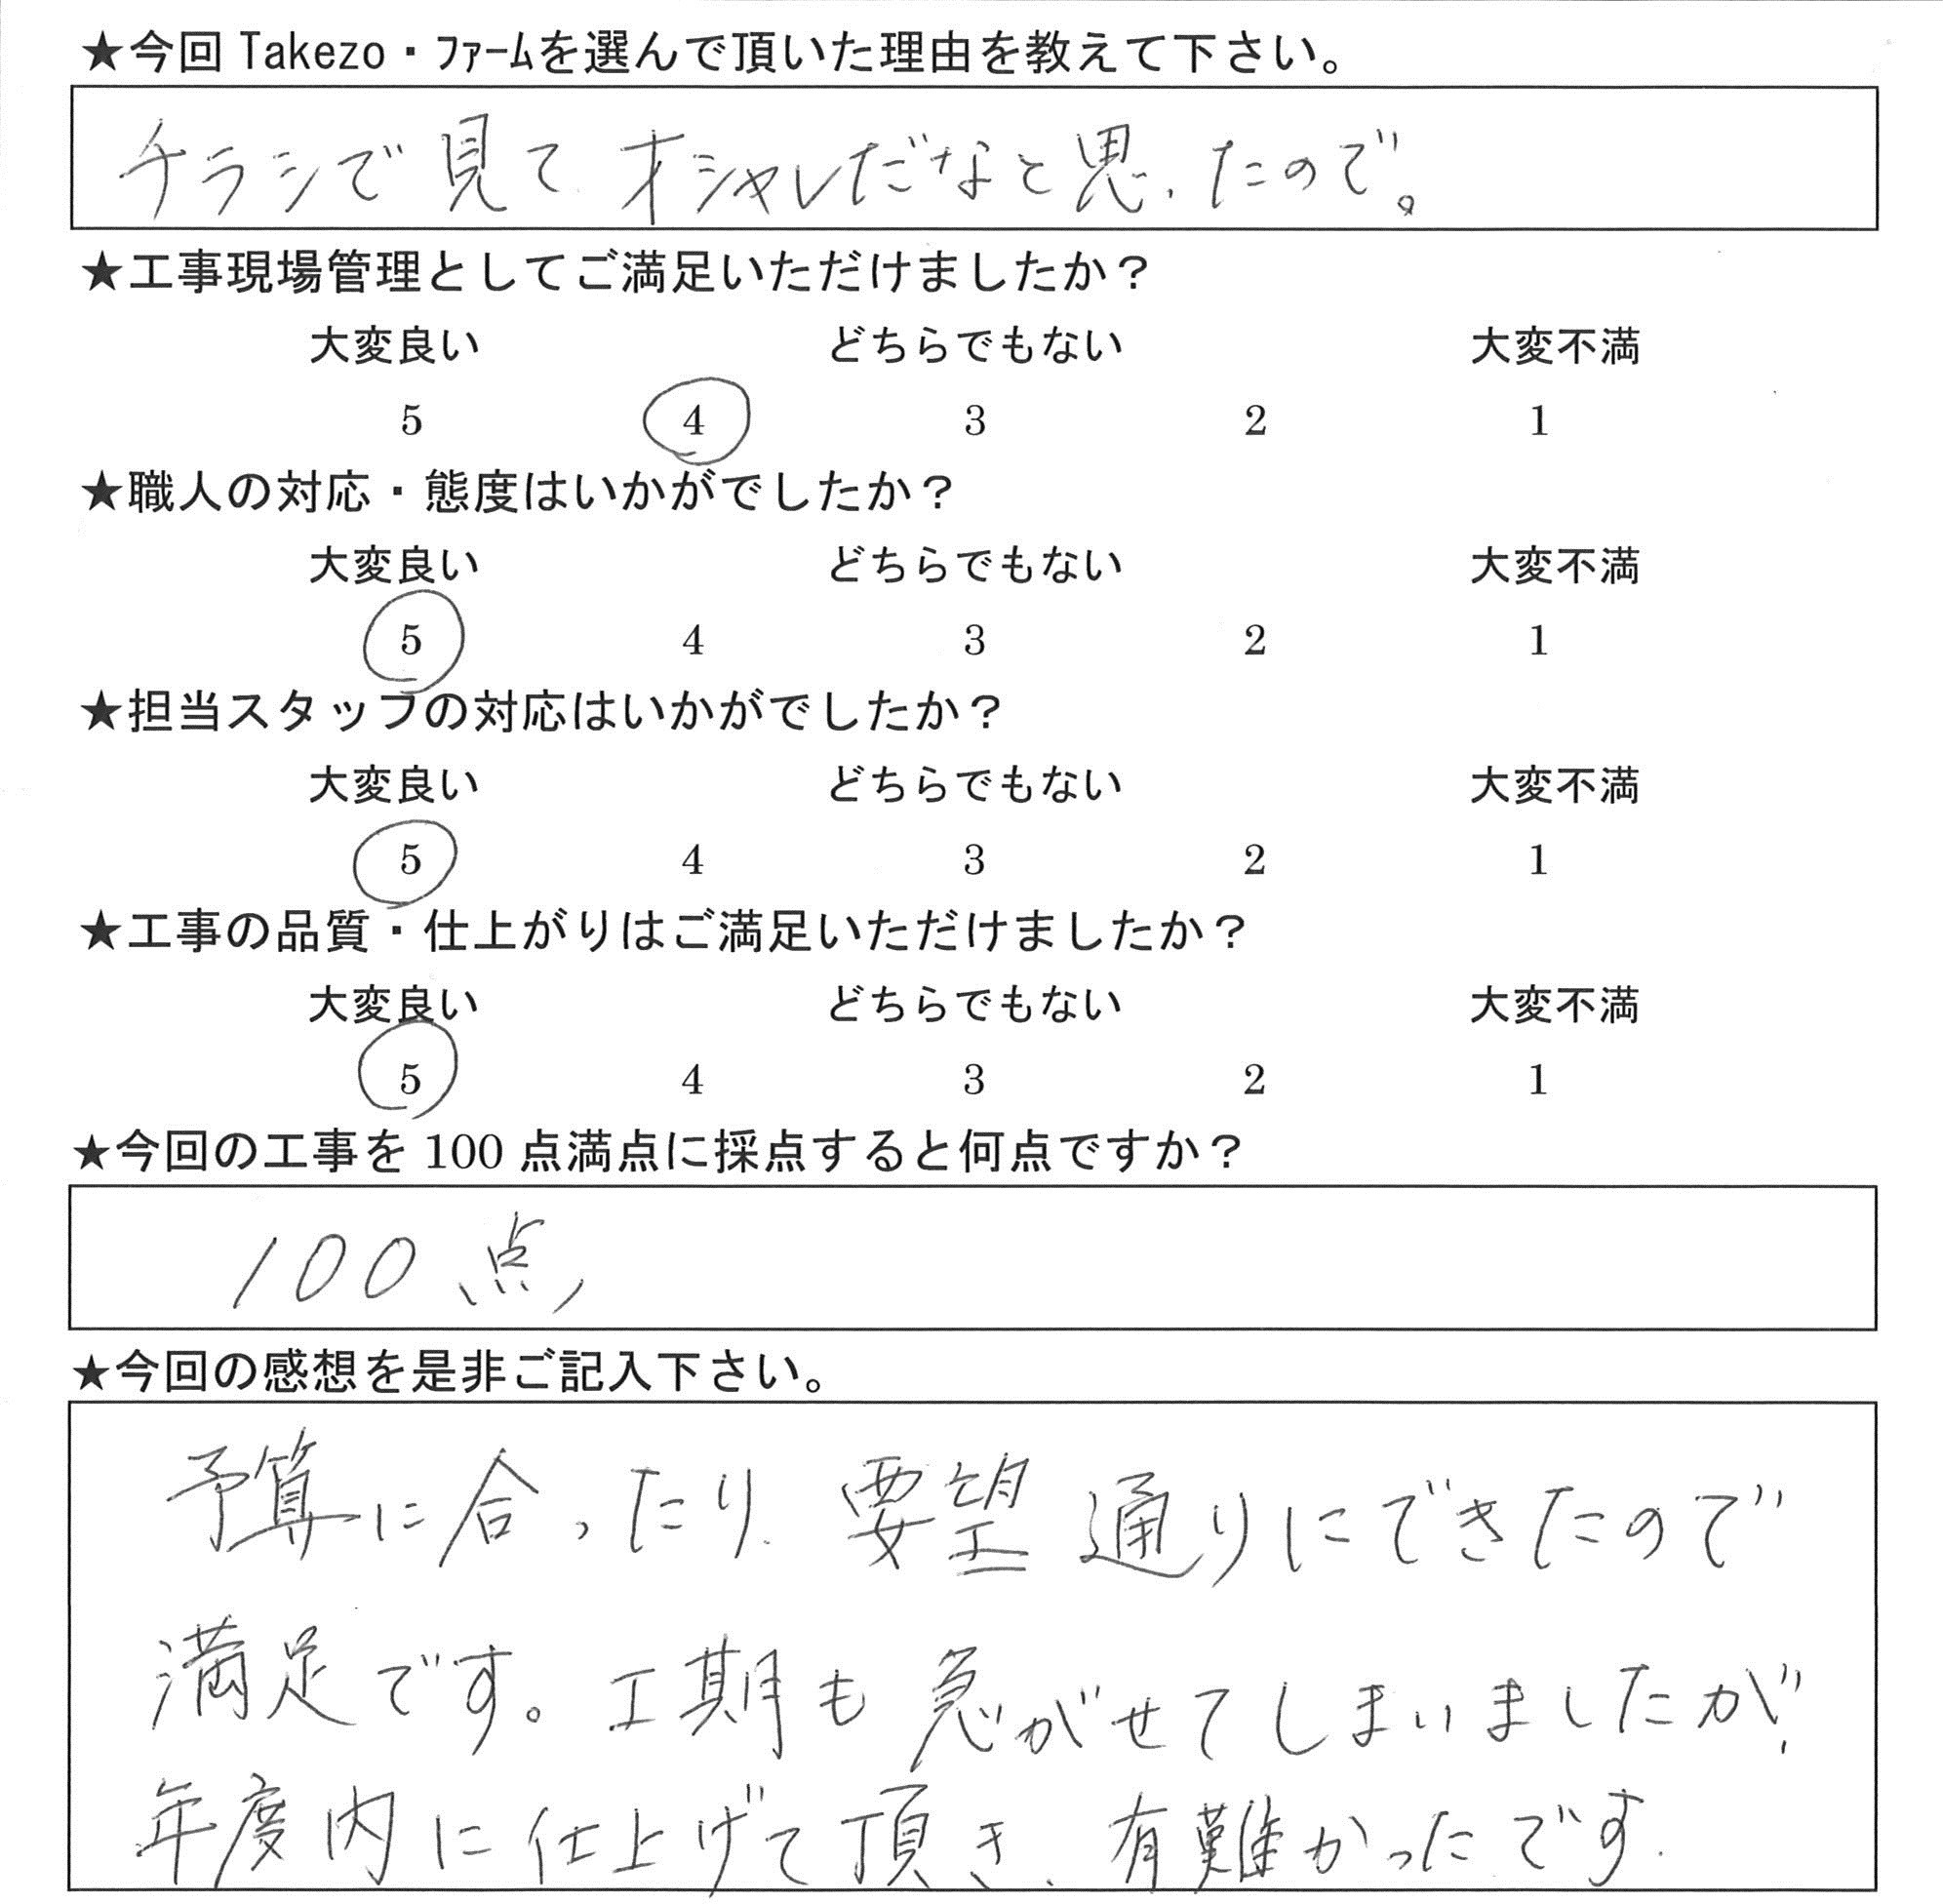 ★今回 Takezo・ﾌｧｰﾑを選んで頂いた理由を教えて下さい。
チラシで見て、オシャレだなと思ったので。
★工事現場管理としてご満足いただけましたか？
大変良い どちらでもない 大変不満
5 4 3 2 1
★職人の対応・態度はいかがでしたか？
大変良い どちらでもない 大変不満
5 4 3 2 1
★担当スタッフの対応はいかがでしたか？
大変良い どちらでもない 大変不満
5 4 3 2 1
★工事の品質・仕上がりはご満足いただけましたか？
大変良い どちらでもない 大変不満
5 4 3 2 1
★今回の工事を 100 点満点に採点すると何点ですか？
100点
★今回の感想を是非ご記入下さい。
予算に合ったり、要望通りにできたので
満足です。工期も急がせてしまいましたが、
年度内に仕上げて頂き、有難かったです.